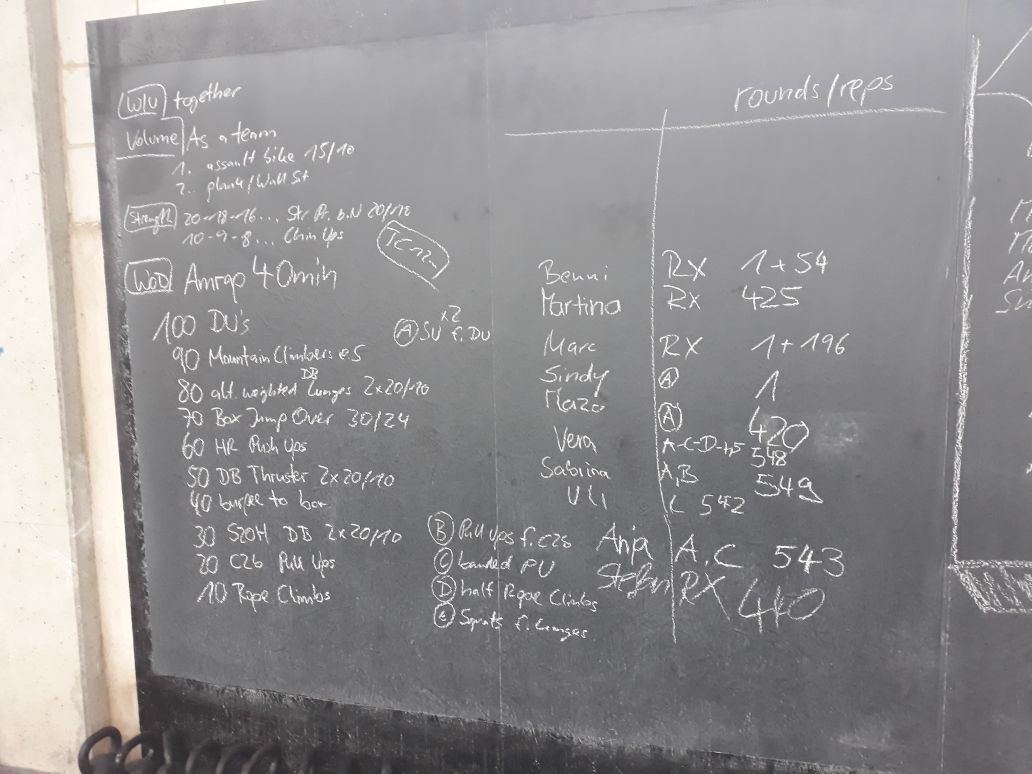 W/U together
Volume As a team
1. assault bike 15/10
2. plank/Wall Sit
Strength 20-18-16... Str. Pr. b.N 20/10
10-9-8... Chin Ups
TC 12
WOD Amrap 40min
100 DU's
90 Mountain Climbers e.S
80 alt. weighted DB Lunges 2x20/10
70 Box Jump Over 30/24
60 HR Push Ups
50 DB Thruster 2x20/10
40 burpee to box
30 S2OH DB 2x20/10
20 C2b Pull Ups
10 Rope Climbs
A SU x2 f. DU
B Pull Ups f. C2b
C banded PU
D half Rope Climbs
E Squats f. Lunges
rounds/reps
Benni RX 1+54
Martina RX 425
Marc RX 1+196
Sindy A 1
A 420
Vera 548
Sabrina A,B 549
Uli C 542
Anja A.C 543
Stefan RX 440